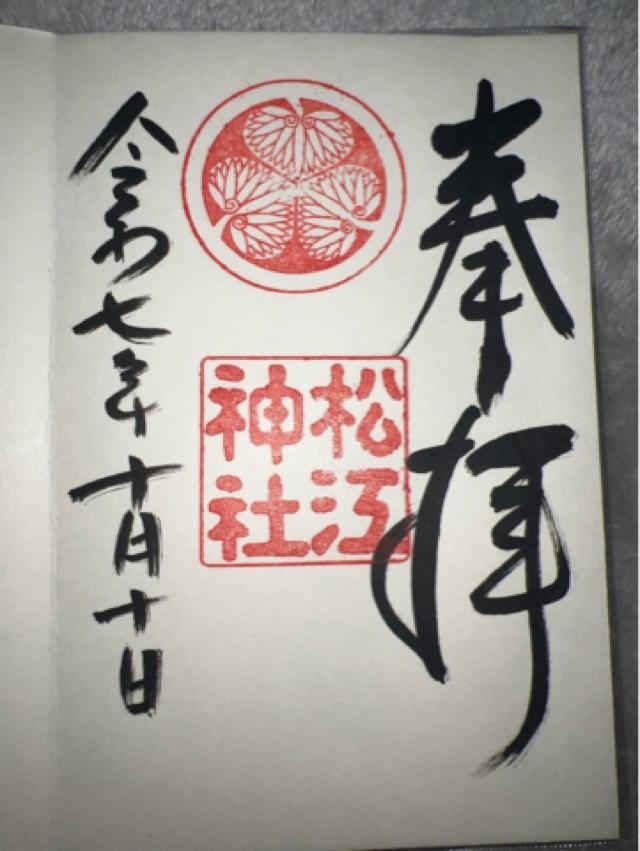 奉拝
松江
神社
令和七年十月十日